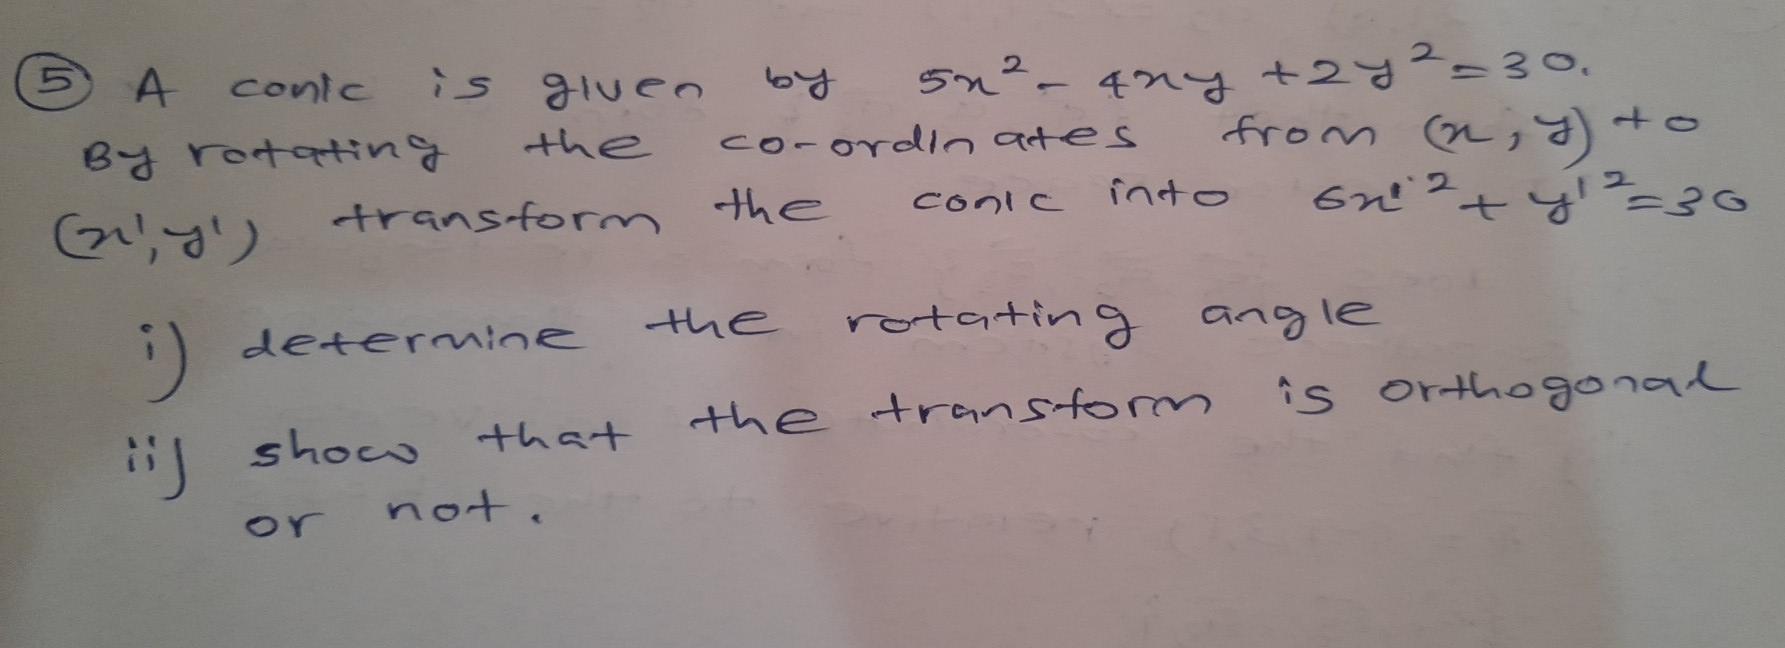 ⑤ A conic is given by 5x² - 4xy + 2y² = 30.
By rotating the co-ordinates from (x, y) to
(x', y') transform the conic into 6x'² + y'² = 30
i) determine the rotating angle
ii) show that the transform is orthogonal
or not.